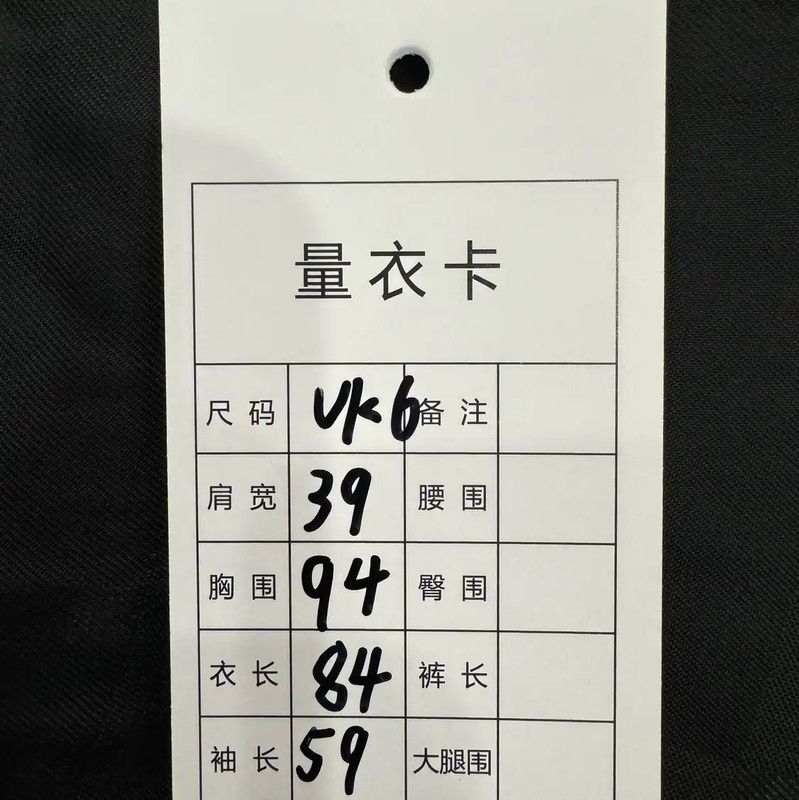 量衣卡
尺码 UK6 备注
肩宽 39 腰围
胸围 94 臀围
衣长 84 裤长
袖长 59 大腿围